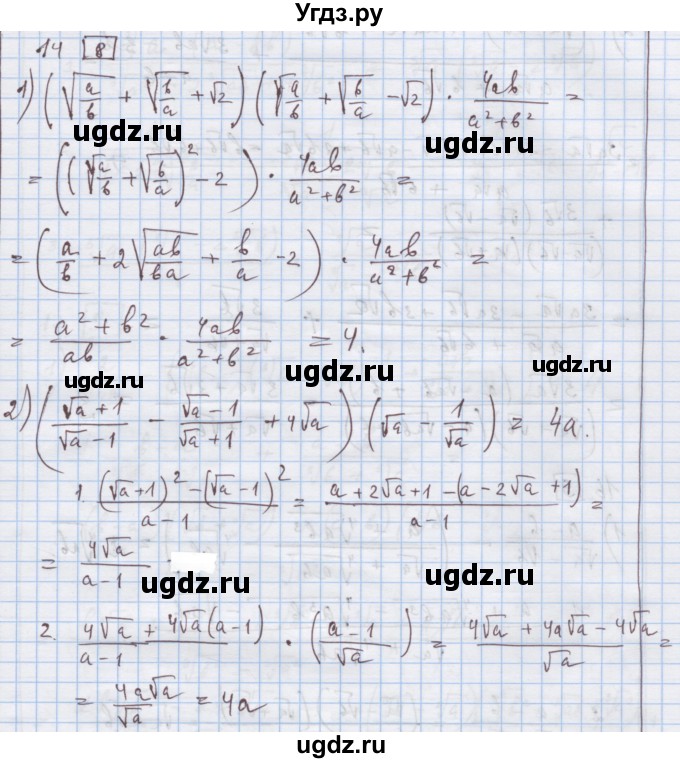 Угдз.ру
14 8
1) (√(a/b) + √(b/a) + √2) (√(a/b) + √(b/a) − √2) · 4ab/(a² + b²) =
ugdz.ru ugdz.ru
= ((√(a/b) + √(b/a))² − 2) · 4ab/(a² + b²) =
= (a/b + 2√(ab/ba) + b/a − 2) · 4ab/(a² + b²) =
ugdz.ru ugdz.ru
= (a² + b²)/ab · 4ab/(a² + b²) = 4.
ugdz.ru ugdz.ru
2) ((√a + 1)/(√a − 1) − (√a − 1)/(√a + 1) + 4√a) (√a − 1/√a) = 4a.
ugdz.ru
1. ((√a + 1)² − (√a − 1)²)/(a − 1) = (a + 2√a + 1 − (a − 2√a + 1))/(a − 1) =
= 4√a/(a − 1)
ugdz.ru ugdz.ru
2. (4√a + 4√a(a − 1))/(a − 1) · ((a − 1)/√a) = (4√a + 4a√a − 4√a)/√a =
= 4a√a/√a = 4a
ugdz.ru
ugdz.ru